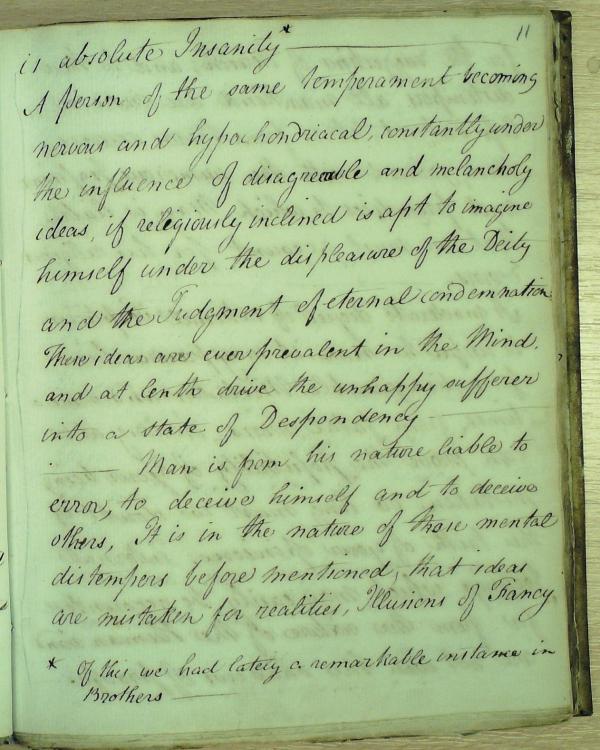 11
is absolute Insanity *
A person of the same temperament becoming
nervous and hypochondriacal, constantly under
the influence of disagreeable and melancholy
ideas, if religiously inclined is apt to imagine
himself under the displeasure of the Deity
and the Judgment of eternal condemnation.
These ideas are ever prevalent in the Mind,
and at lenth drive the unhappy sufferer
into a state of Despondency —
— Man is from his nature liable to
error, to deceive himself and to deceive
others, It is in the nature of those mental
distempers before mentioned, that ideas
are mistaken for realities, Illusions of Fancy
* Of this we had lately a remarkable instance in
Brothers —